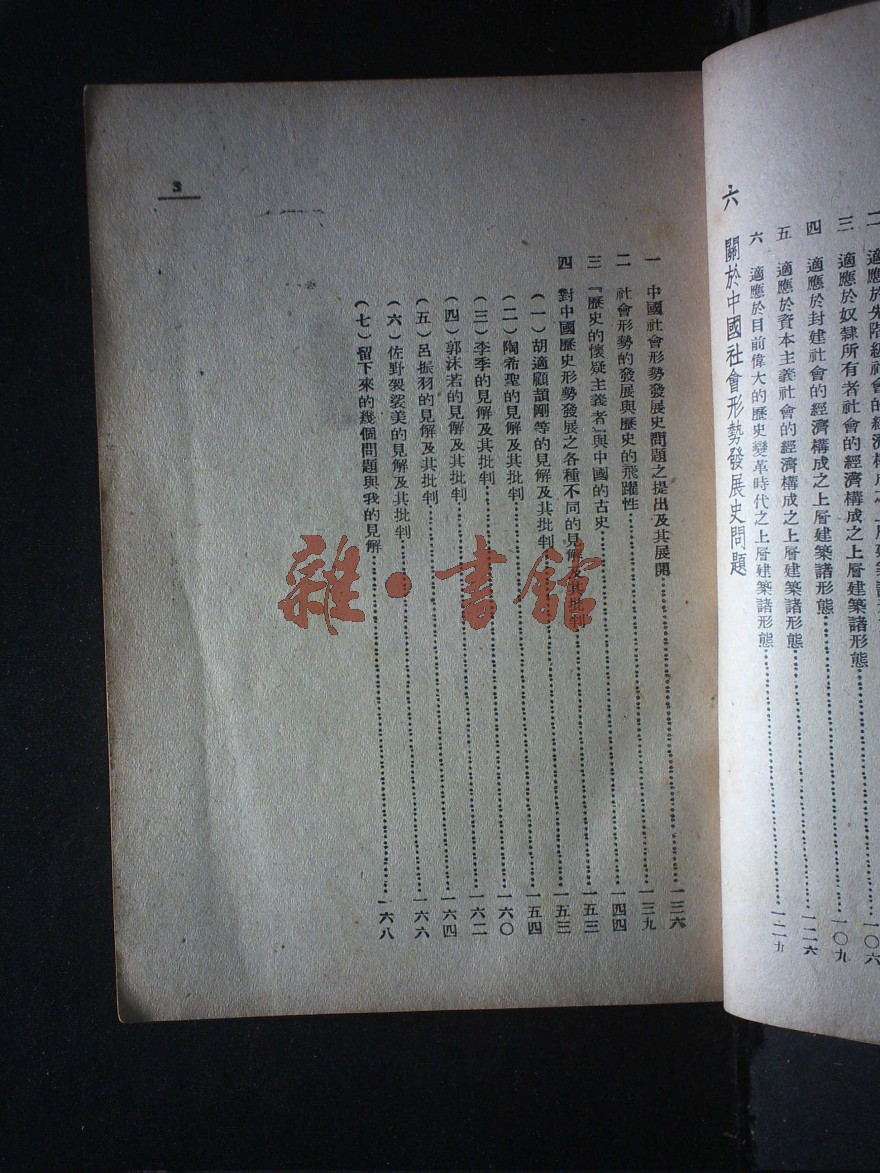 二 適應於先階級社會的經濟
一〇六
三 適應於奴隸所有者社會的經濟構成之上層建築諸形態……一〇九
四 適應於封建社會的經濟構成之上層建築諸形態……一二六
五 適應於資本主義社會的經濟構成之上層建築諸形態……一二九
六 適應於目前偉大的歷史變革時代之上層建築諸形態
六 關於中國社會形勢發展史問題
一 中國社會形勢發展史問題之提出及其展開……一三六
二 社會形勢的發展與歷史的飛躍性……一三九
三 『歷史的懷疑主義者』與中國的古史……一四四
四 對中國歷史形勢發展之各種不同的見解及其批判……一五三
(一)胡適顧頡剛等的見解及其批判……一五三
(二)陶希聖的見解及其批判……一五四
(三)李季的見解及其批判……一六〇
(四)郭沫若的見解及其批判……一六二
(五)呂振羽的見解及其批判……一六四
(六)佐野袈裟美的見解及其批判……一六六
(七)留下來的幾個問題與我的見解……一六八
3
雜·書館